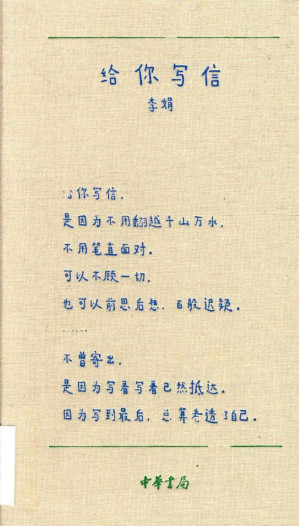 给你写信
李娟
给你写信，
是因为不用翻越千山万水，
不用笔直面对。
可以不顾一切，
也可以前思后想，百般迟疑。
……
不曾寄出，
是因为写着写着已然抵达。
因为写到最后，总算参透了自己。
中華書局